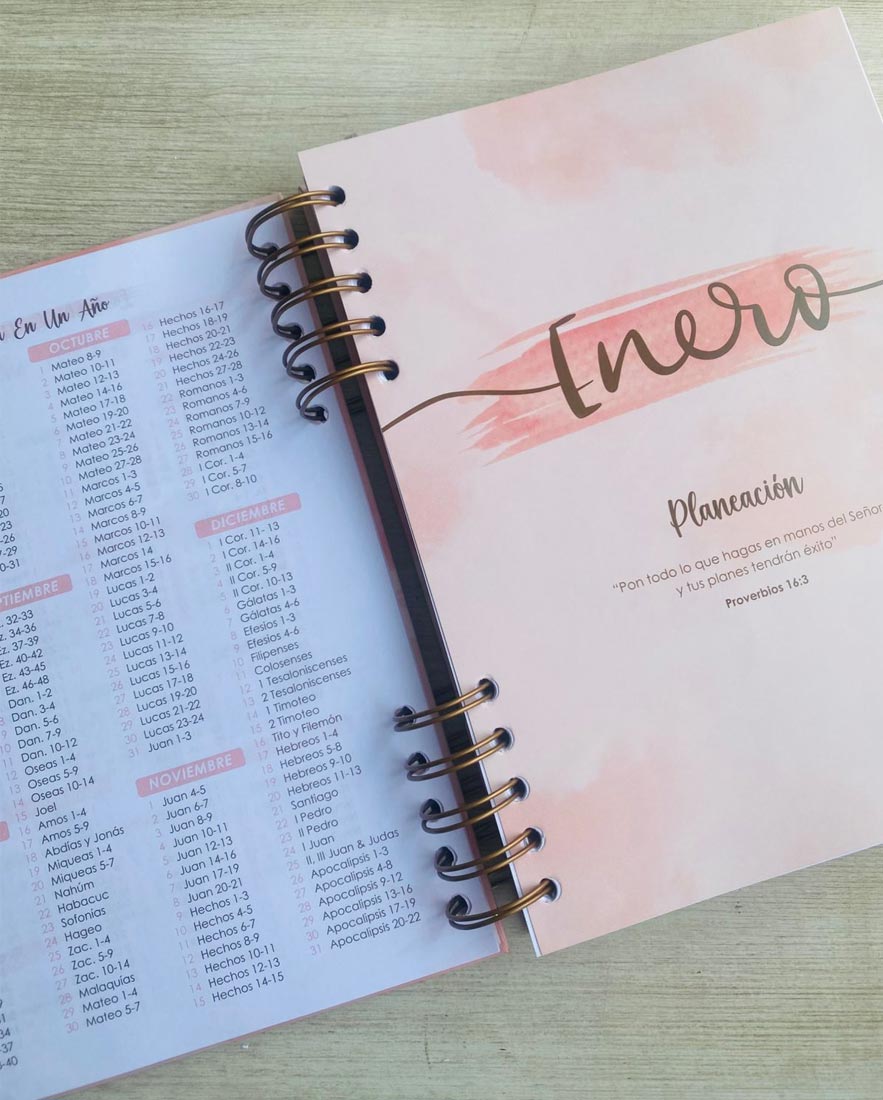 En Un Año
32-33
34-36
37-39
Ez. 40-42
Ez. 43-45
Ez. 46-48
Dan. 1-2
8 Dan. 3-4
9 Dan. 5-6
10 Dan. 7-9
11 Dan. 10-12
12 Oseas 1-4
13 Oseas 5-9
14 Oseas 10-14
15 Joel
16 Amos 1-4
17 Amos 5-9
18 Abdías y Jonás
19 Miqueas 1-4
20 Miqueas 5-7
21 Nahúm
22 Habacuc
23 Sofonias
24 Hageo
25 Zac. 1-4
26 Zac. 5-9
27 Zac. 10-14
28 Malaquías
29 Mateo 1-4
30 Mateo 5-7
OCTUBRE
1 Mateo 8-9
2 Mateo 10-11
3 Mateo 12-13
4 Mateo 14-16
5 Mateo 17-18
6 Mateo 19-20
7 Mateo 21-22
8 Mateo 23-24
9 Mateo 25-26
10 Mateo 27-28
11 Marcos 1-3
12 Marcos 4-5
13 Marcos 6-7
14 Marcos 8-9
15 Marcos 10-11
16 Marcos 12-13
17 Marcos 14
18 Marcos 15-16
19 Lucas 1-2
20 Lucas 3-4
21 Lucas 5-6
22 Lucas 7-8
23 Lucas 9-10
24 Lucas 11-12
25 Lucas 13-14
26 Lucas 15-16
27 Lucas 17-18
28 Lucas 19-20
29 Lucas 21-22
30 Lucas 23-24
31 Juan 1-3
NOVIEMBRE
1 Juan 4-5
2 Juan 6-7
3 Juan 8-9
4 Juan 10-11
5 Juan 12-13
6 Juan 14-16
7 Juan 17-19
8 Juan 20-21
9 Hechos 1-3
10 Hechos 4-5
11 Hechos 6-7
12 Hechos 8-9
13 Hechos 10-11
14 Hechos 12-13
15 Hechos 14-15
16 Hechos 16-17
17 Hechos 18-19
18 Hechos 20-21
19 Hechos 22-23
20 Hechos 24-26
21 Hechos 27-28
22 Romanos 1-3
23 Romanos 4-6
24 Romanos 7-9
25 Romanos 10-12
26 Romanos 13-14
27 Romanos 15-16
28 I Cor. 1-4
29 I Cor. 5-7
30 I Cor. 8-10
DICIEMBRE
1 I Cor. 11- 13
2 I Cor. 14-16
3 II Cor. 1-4
4 II Cor. 5-9
5 II Cor. 10-13
6 Gálatas 1-3
7 Gálatas 4-6
8 Efesios 1-3
9 Efesios 4-6
10 Filipenses
11 Colosenses
12 1 Tesaloniscenses
13 2 Tesaloniscenses
14 1 Timoteo
15 2 Timoteo
16 Tito y Filemón
17 Hebreos 1-4
18 Hebreos 5-8
19 Hebreos 9-10
20 Hebreos 11-13
21 Santiago
22 I Pedro
23 II Pedro
24 I Juan
25 II, III Juan & Judas
26 Apocalipsis 1-3
27 Apocalipsis 4-8
28 Apocalipsis 9-12
29 Apocalipsis 13-16
30 Apocalipsis 17-19
31 Apocalipsis 20-22
Enero
Planeación
"Pon todo lo que hagas en manos del Señor
y tus planes tendrán éxito"
Proverbios 16:3